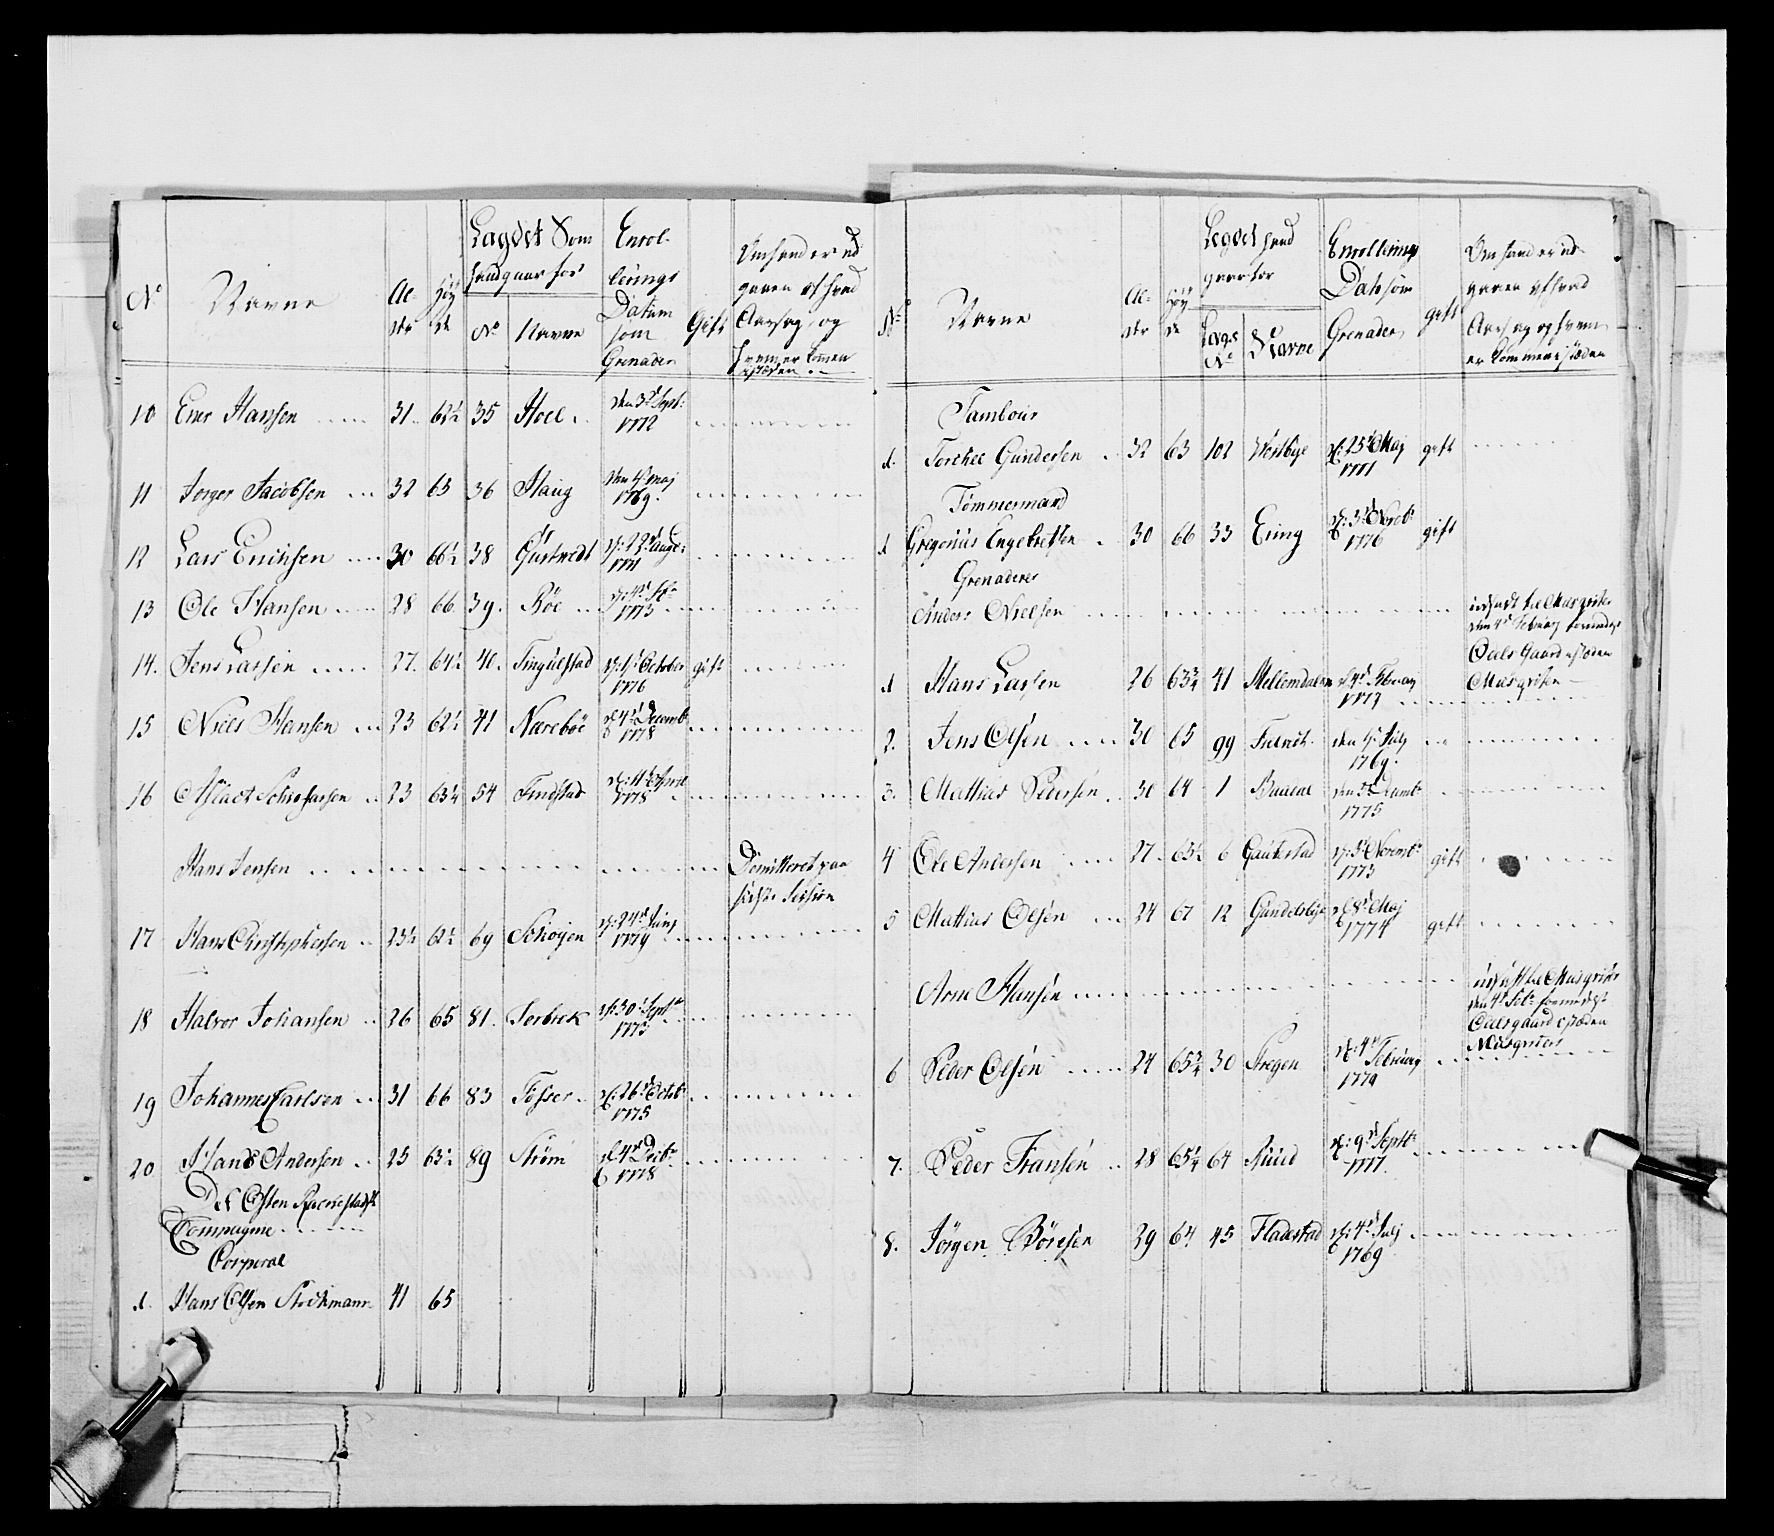 No Navne Al- der Høy de Lagdet Som hand gaar for No Navne Enrol- lerings Datum som Grenader Gift Om hand er ud gaaen af hvad Aarsag, og hvem er kommen i stæden
10 Ener Hansen 31 62½ 35 Hoel den 3d Sept: 1772
11 Jørger Jacobsen 32 63 36 Haug den 4d maj 1769.
12 Lars Erichsen 30 66½ 38 Gustvedt d: 22d Aug: 1771
13 Ole Hansen 28 66 39. Böe 1773
14. Jens Larsen 27. 64½ 40. Fingulstad d: 1d October 1776 gift
15 Niels Hansen 23 62½ 41 Næreböe d 4d Decemb 1778
16 Aslach 23 63¼ 54 Findstad d: 11d April 1778
Hans Jensen Demitteret paa sidste Session
17 Hans Christophersen 23½ 62½ 69 Schögen d: 24d Junj 1779
18 Halvor Johansen 26 65 81. Sorbrek d: 30d Sept 1773
19 Johannes Carlsen 31 66 83 Fosser d: 26d Octob 1775
20 Hans Andersen 25 63½ 89 Ström d 4d Decbr 1778
Det Østen
Compagnie
Corporal
1. Hans Olsen Stockmann 41 65
No Navne Al- der Høy de Legdet hand gaar for Legd No Navne Enrollerings Dato som Grenader gift Om hand er ud- gaaen af hvad Aarsag og hvem er kommen i stæden
Tambour
1. Torchel Gundersen 32 63 102 Westbye d: 25d Maj 1771 gift
Tømmermand
1 Gregorius Engebretsen 30 66 33 Eeng d: 3d Novbr 1776 gift
Grenaderer
Anders Nielsen indsadt bel Musqvter den 4d Februarj formedelst Oeels Gaard i stæden
1 Hans Larsen 26 63¾ 41 Mellemdalen d 4d Februarj 1779 Musqvter
2. Jens Olsen 30 65 99 den 4d Julj 1769.
3. Mathias Pedersen 30 64 1 1775
4 Ole Andersen 27. 63½ 6 Gautestad d: 3d Novembr 1773 gift
5 Mathias Olsen 24 67 12 Gundersbye d 8d Maj 1774 gift
Arne Hansen indsatt bel Musqvter den 4d Febr formedelst Oeelsgaard i stæden Musqvter
6 Peder Olsen 24 65¾ 30 Stregen d: 4d Februarj 1779
7. Peder Fransen 28 65¼ 64 Ruud d: 9d Septbr 1777.
8. Jörgen Börresen 29 64 45 Fladestad d: 4d Julj 1769